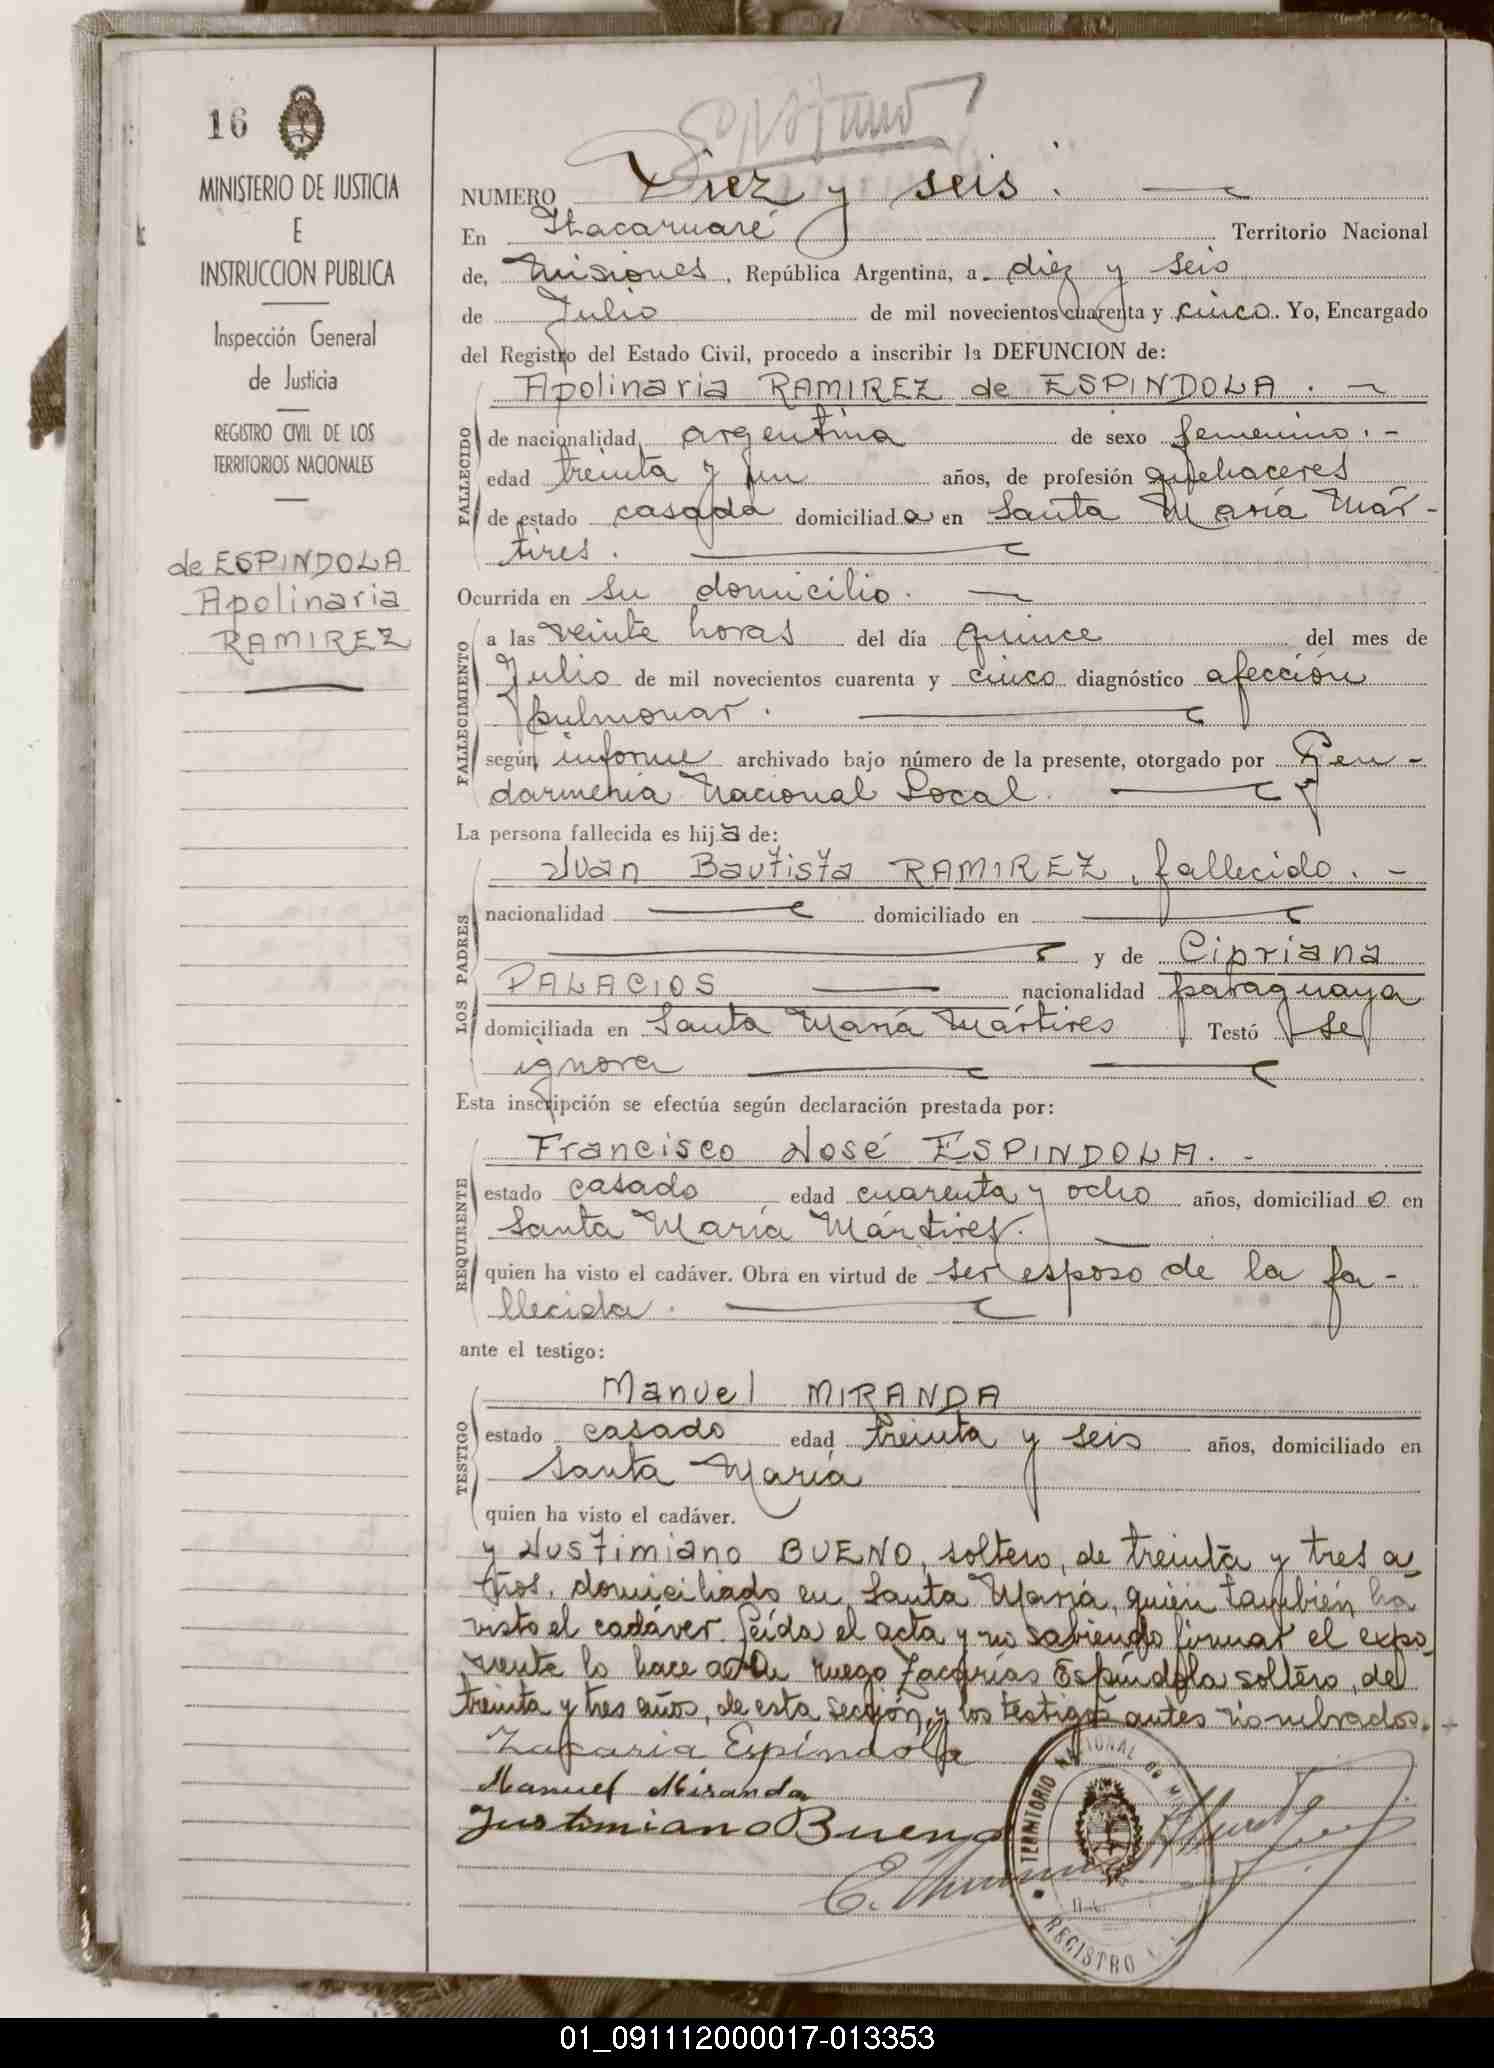 16
MINISTERIO DE JUSTICIA
E
INSTRUCCION PUBLICA
Inspección General
de Justicia
REGISTRO CIVIL DE LOS
TERRITORIOS NACIONALES
de ESPINDOLA
Apolinaria
RAMIREZ
NUMERO Diez y seis.
En Itacaruaré Territorio Nacional
de, Misiones, República Argentina, a diez y seis
de Julio de mil novecientos cuarenta y cinco. Yo, Encargado
del Registro del Estado Civil, procedo a inscribir la DEFUNCION de:
FALLECIDO
Apolinaria RAMIREZ de ESPINDOLA. -
de nacionalidad argentina de sexo femenino. -
edad treinta y un años, de profesión quehaceres
de estado casada domiciliada en Santa María Már-
tires.
Ocurrida en su domicilio.
FALLECIMIENTO
a las veinte horas del día quince del mes de
Julio de mil novecientos cuarenta y cinco diagnóstico afección
pulmonar.
según informe archivado bajo número de la presente, otorgado por Gen-
darmería Nacional Local.
La persona fallecida es hija de:
LOS PADRES
Juan Bautista RAMIREZ, fallecido. -
nacionalidad domiciliado en
y de Cipriana
PALACIOS nacionalidad paraguaya
domiciliada en Santa María Mártires Testó se
ignora
Esta inscripción se efectúa según declaración prestada por:
REQUIRENTE
Francisco José ESPINDOLA. -
estado casado edad cuarenta y ocho años, domiciliado en
Santa María Mártires.
quien ha visto el cadáver. Obra en virtud de ser esposo de la fa-
llecida.
ante el testigo:
TESTIGO
Manuel MIRANDA
estado casado edad treinta y seis años, domiciliado en
Santa María
quien ha visto el cadáver.
y Justimiano BUENO, soltero, de treinta y tres a
ños, domiciliado en Santa María, quién también ha
visto el cadáver. Leída el acta y no sabiendo firmar el expo
nente lo hace a su ruego Zacarías Espíndola soltero, de
treinta y tres años, de esta sección, y los testigos antes nombrados.
Zacaria Espíndola
Manuel Miranda
Justimiano Bueno
TERRITORIO NACIONAL DE
REGISTRO
01_091112000017-013353